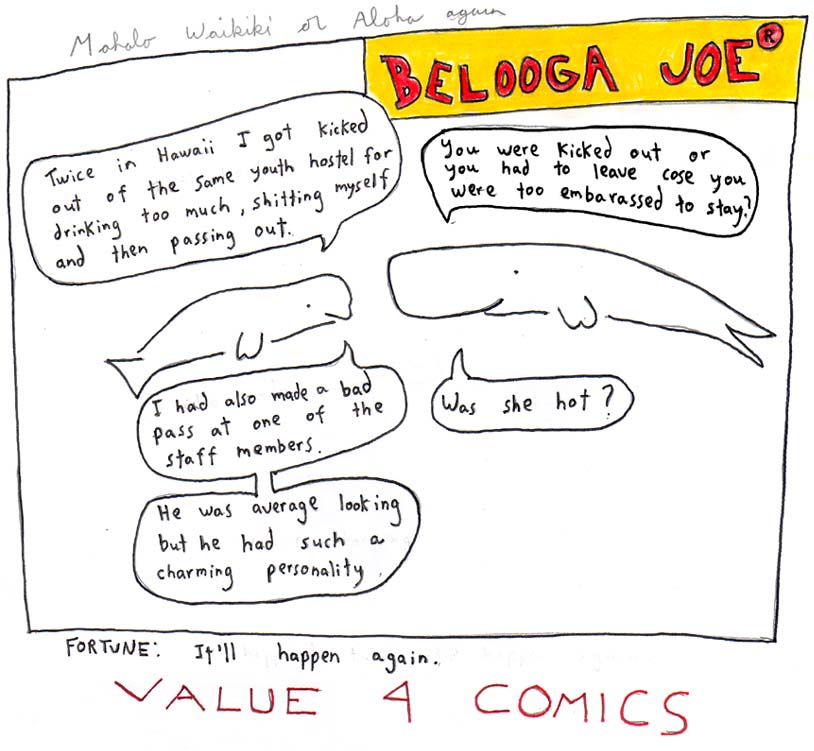 Mahalo Waikiki or Aloha again
BELOOGA JOE®
Twice in Hawaii I got kicked
out of the same youth hostel for
drinking too much, shitting myself
and then passing out.
You were kicked out or
you had to leave cose you
were too embarassed to stay?
I had also made a bad
pass at one of the
staff members.
Was she hot?
He was average looking
but he had such a
charming personality.
FORTUNE: It'll happen again.
VALUE 4 COMICS